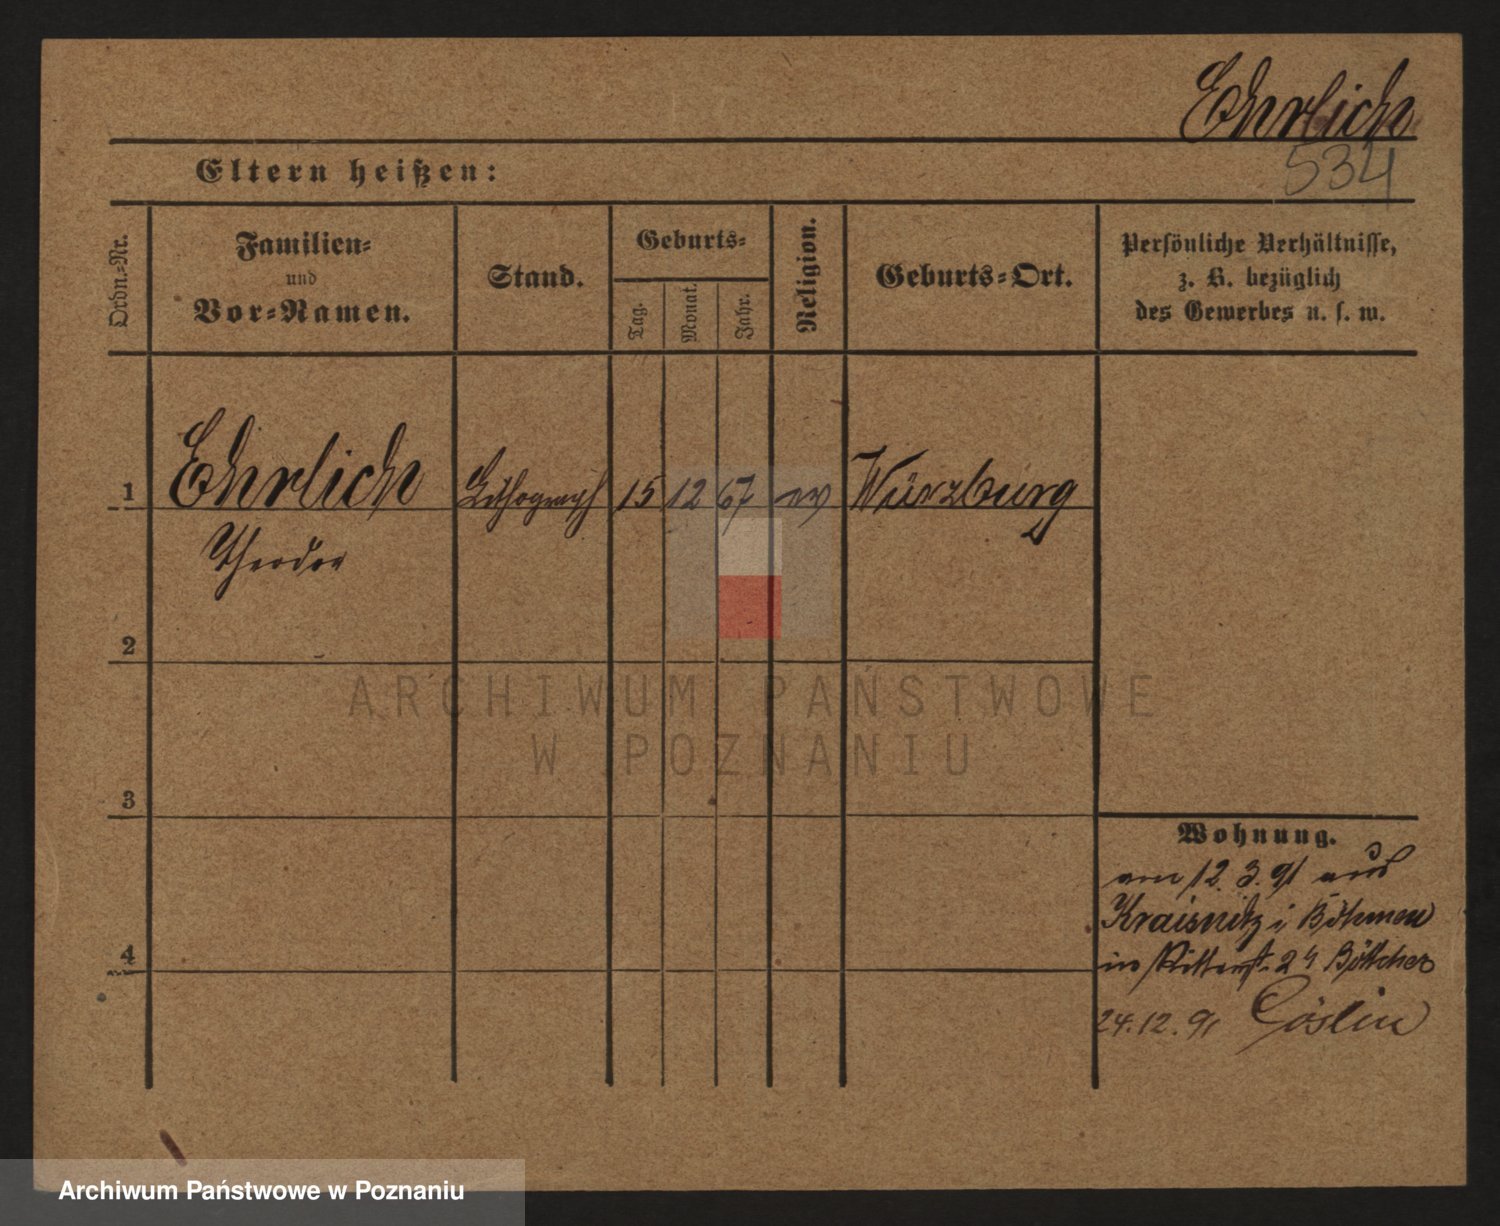 Ehrlich
534
Eltern heißen:
Ordn.-Nr.
Familien-
und
Vor-Namen.
Stand.
Geburts-
Tag.
Monat.
Jahr.
Religion.
Geburts-Ort.
Persönliche Verhältnisse,
z. B. bezüglich
des Gewerbes u. s. w.
1 Ehrlich Lithograph 15 12 67 ev Würzburg
Theodor
2
3
4
Wohnung.
am 12. 3. 91 aus
Kraisnitz i Böhmen
in Ritterst. 24 Böttcher
24.12.91 Cöslin
ARCHIWUM PAŃSTWOWE
W POZNANIU
Archiwum Państwowe w Poznaniu